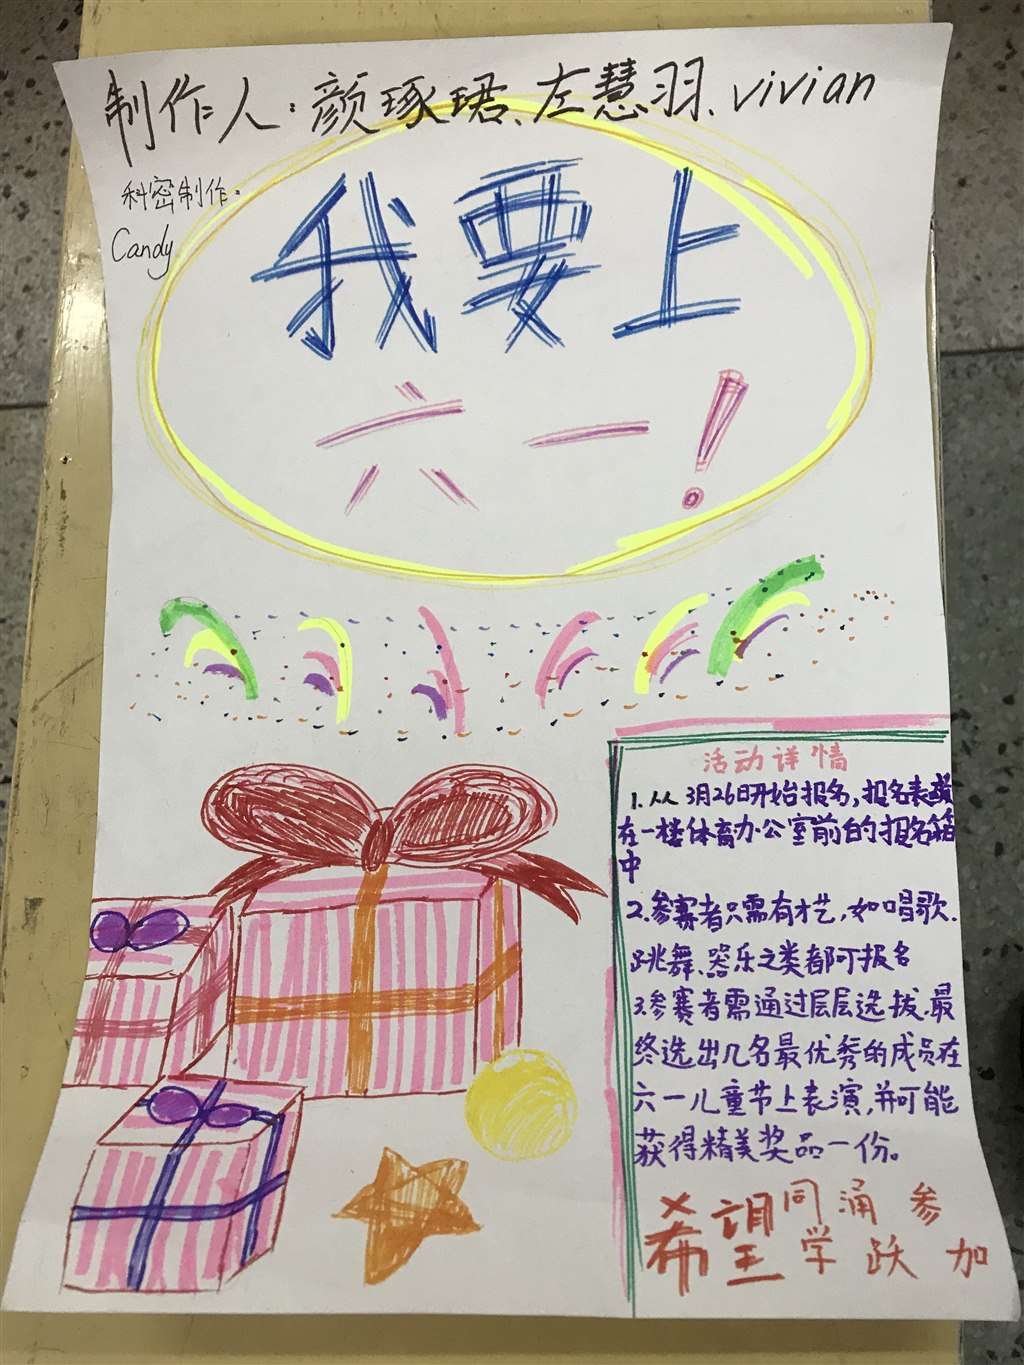 制作人：颜琢珺、左慧羽、vivian
科密制作：
Candy
我要上
六一！
活动详情
1.从3月26日开始报名，报名表
在一楼体育办公室前台的报名箱
中
2.参赛者只需有才艺，如唱歌、
跳舞、器乐之类都可报名
3.参赛者需通过层层选拔，最
终选出几名最优秀的成员在
六一儿童节上表演，并可能
获得精美奖品一份。
希望同学涌跃参加